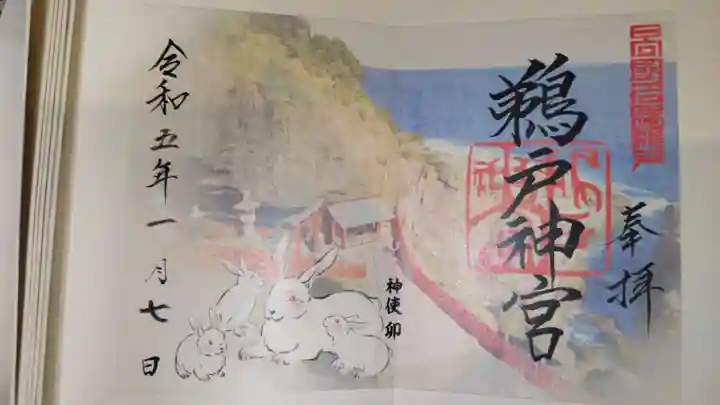 奉拝
鵜戸神宮
神使 卯
令和五年一月七日